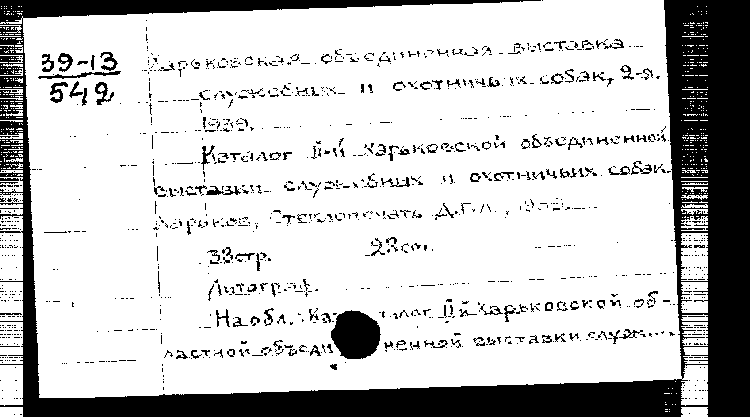 39-13
542
Харьковская объединенная выставка
служебных и охотничьих собак, 2-я.
1939.
Каталог II-й Харьковской объединенной
выставки служебных и охотничьих собак.
Харьков, Стеклопечать Д.Г.И., 1939.
38 стр. 28 см.
Литограф.
На обл.: Каталог II й Харьковской об-
ластной объединенной выставки служ....